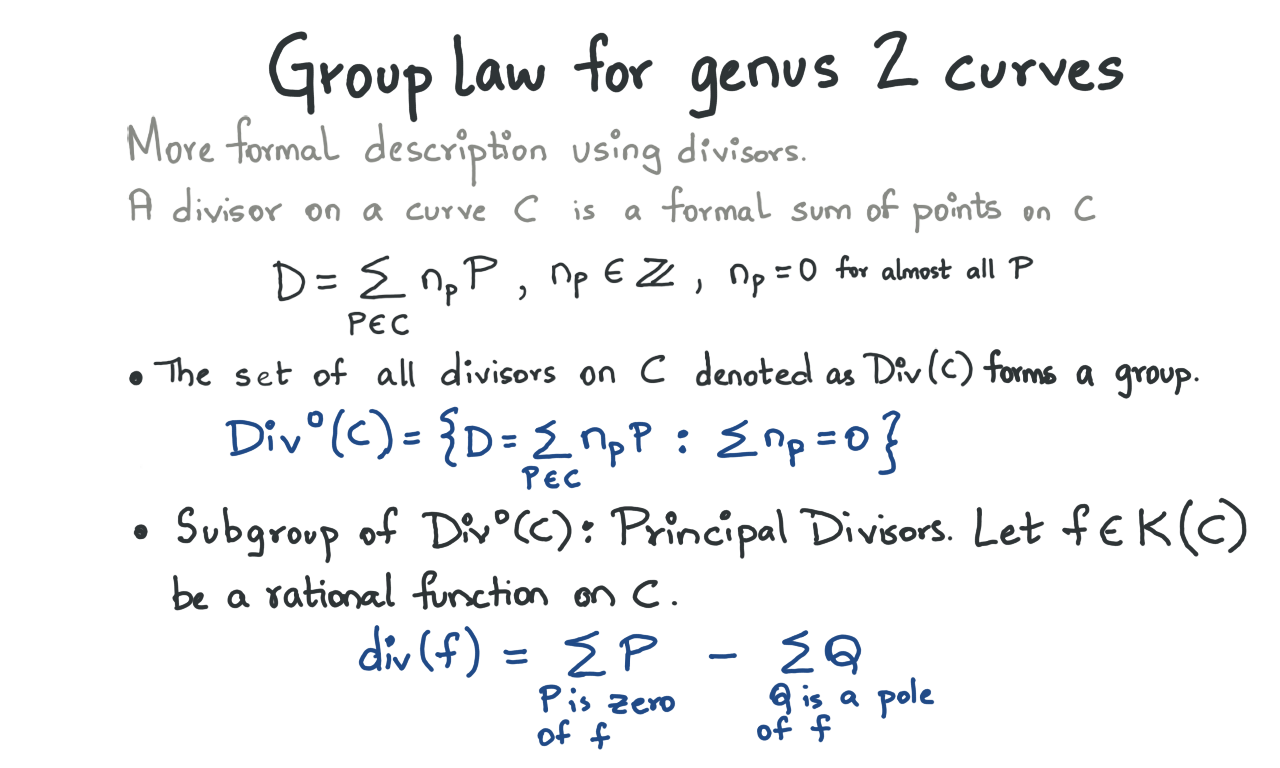 Group law for genus 2 curves
More formal description using divisors.
A divisor on a curve C is a formal sum of points on C
D = ∑ n_p P , n_p ∈ ℤ , n_p = 0 for almost all P
P∈C
• The set of all divisors on C denoted as Div(C) forms a group.
Div°(C) = {D = ∑ n_p P : ∑ n_p = 0}
P∈C
• Subgroup of Div°(C): Principal Divisors. Let f ∈ K(C)
be a rational function on C.
div(f) = ∑ P - ∑ Q
P is zero Q is a pole
of f of f